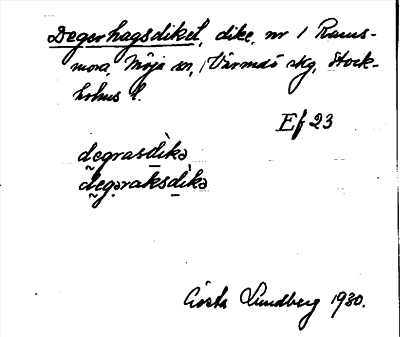 Degerhagsdiket, dike, nr 1 Rams-
mora, Möja sn, Värmdö skg, Stock-
holms l.
Ef 23
degrasdìkə
degəraksdìkə
Gösta Lundberg 1930.